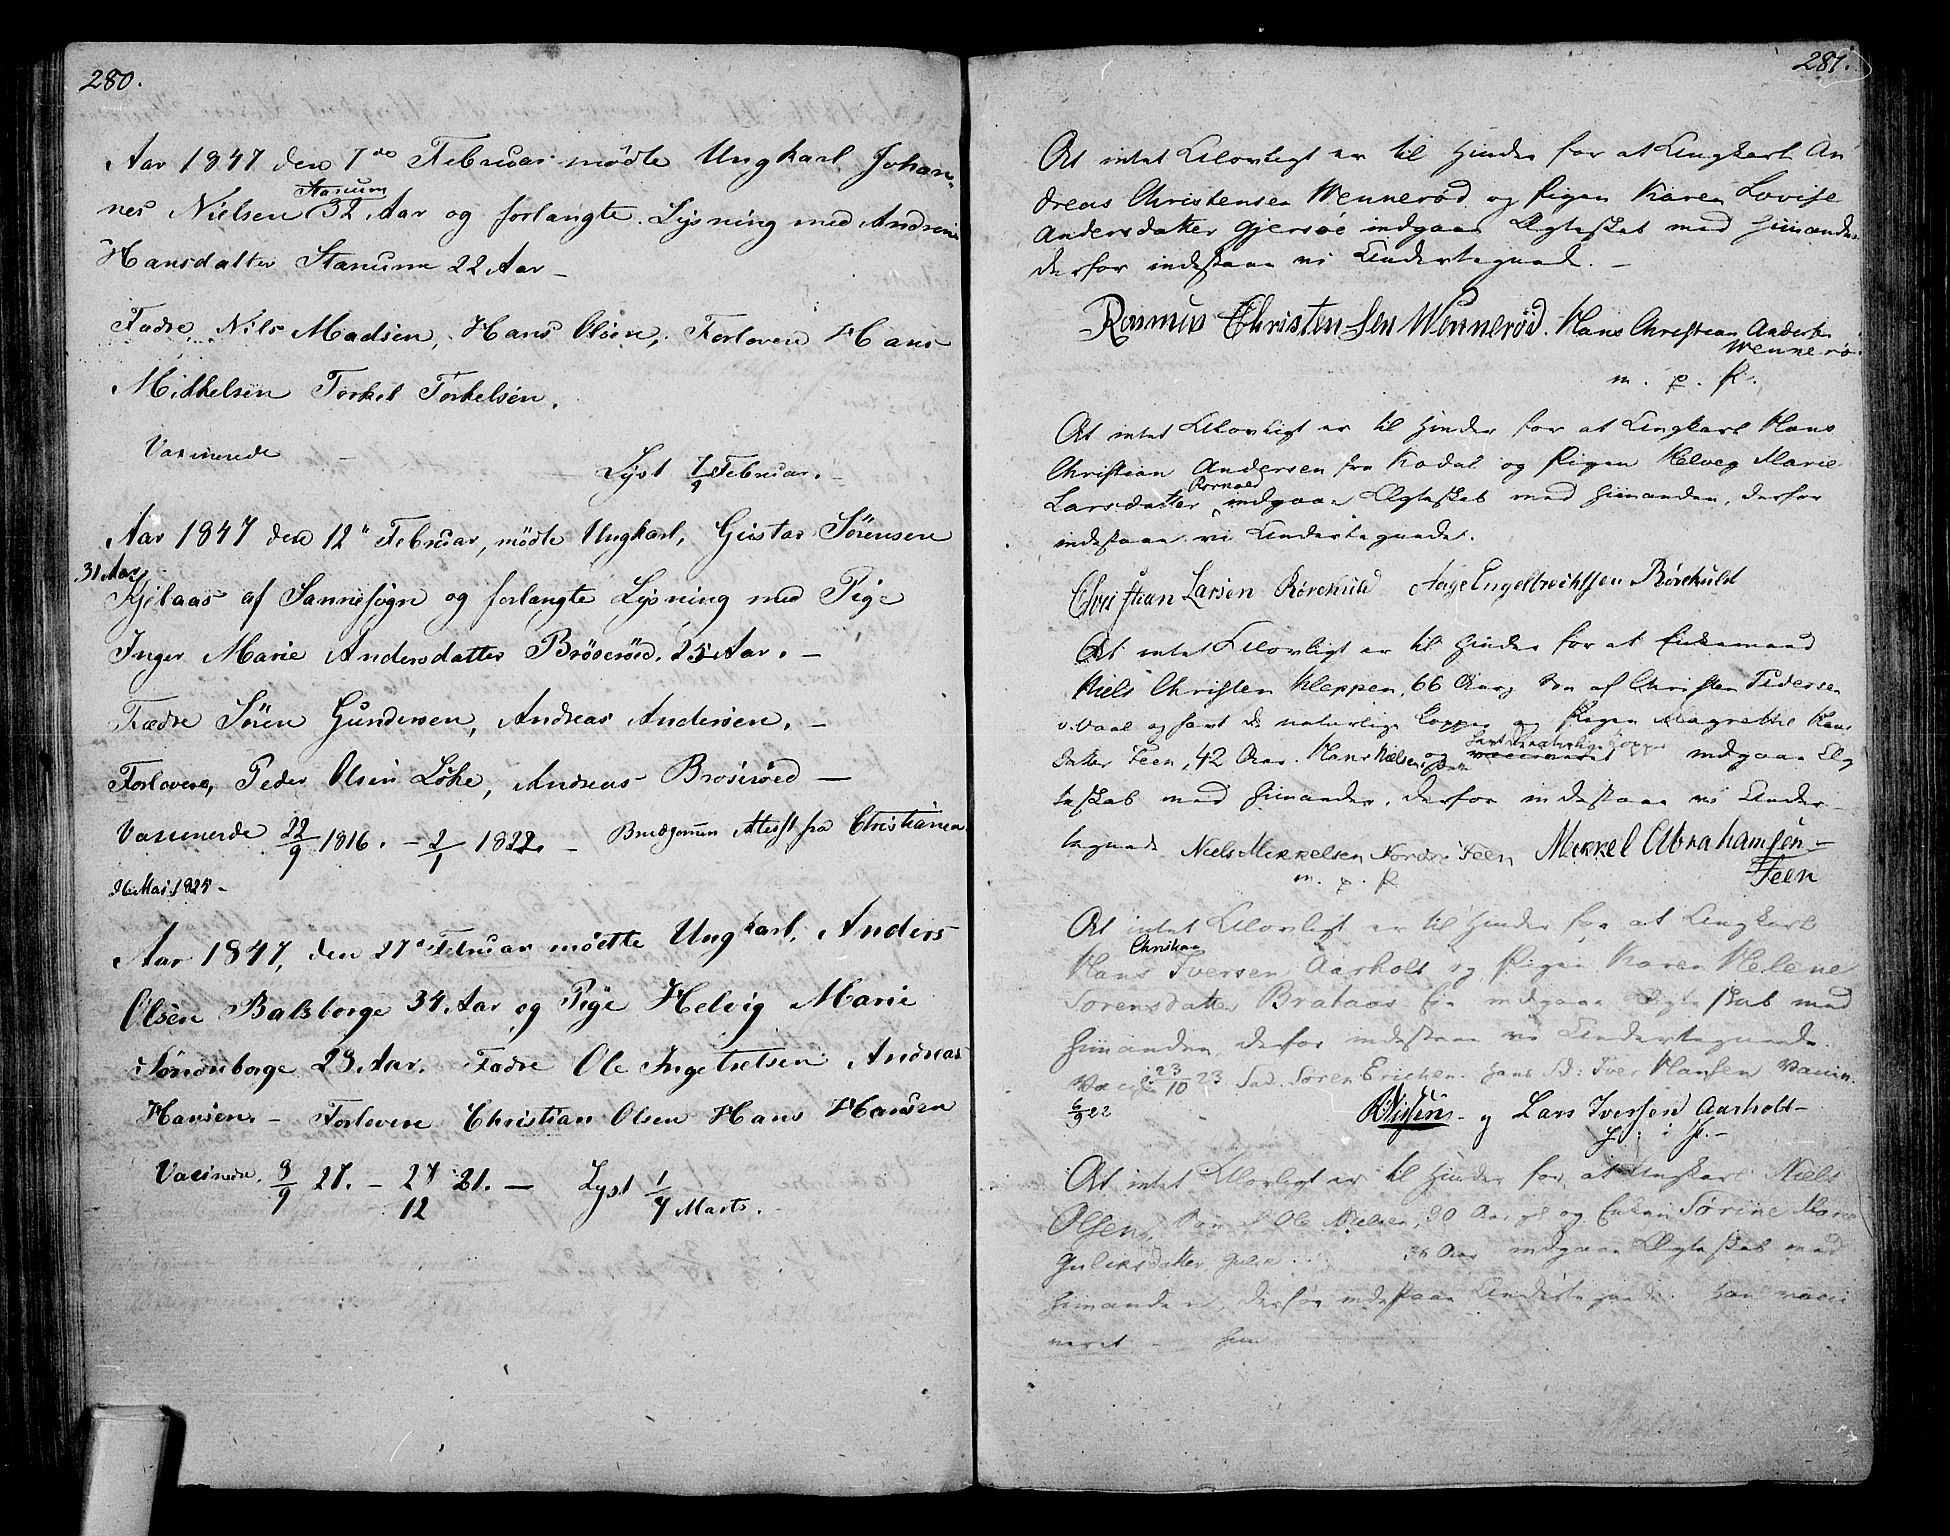 280.
Aar 1847 den 7de Februar mødte Ungkarl Johan-
Stanum
nes Nielsen 32 Aar og forlangte Lysning med Andrine
Hansdatter Stanum 22 Aar –
Fædre, Nils Madsen, Hans Olsen, Forlovere Hans
Mikkelsen Torkel Torkelsen.
Vaxinerede
Lyst 7/9 Februar. –
Aar 1847 den 12te Februar, mødte Ungkarl, Gustav Sörensen
31 Aar
Kjelaas af Sannesogn og forlangte Lysning med Pige
Inger Marie Andersdatter Bröseröd. 25 Aar. –
Fædre Sören Gundersen, Andreas Andersen. –
Forlovere, Peder Olsen Löke, Andreas Bröseröed –
Vaxinerede 22/9 1816. – 2/1 1822. – Brudgommen Attest fra Christiania
26 Mai 1825 –
Aar 1847, den 27de Februar mödte Ungkarl, Anders
Olsen Balsborge 34 Aar og Pige Helvig Marie
Sönonborge 23 Aar. Fædre Ole Ingebretsen Andreas
Hansen. – Forlovere Christian Olsen Hans Hansen
Vaxinerede. 9/9 27. – 27/12 21. – Lyst 1/7 Marts.
281.
At intet Ulovligt er til Hinder for at Ungkarl An
dreas Christensen Wennerød og Pigen Karen Lovise
Andersdatter Gjersøe indgaae Ægteskab med Hinanden
derfor indestaae vi Undertegnede. –
Rasmus Christensen Wennerød. Hans Christian Anders.
Wennerø.
m. p. P.
At intet Ulovligt er til Hinder for at Ungkarl Hans
Christian Andersen fra Kodal og Pigen Helveg Marie
Larsdatter indgaae Ægteskab med Hinanden, derfor
indestaae vi Undertegnede.
Christian Larsen Rørekuld Aage Engelbrechtsen Rørekuld
At intet Ulovligt er til Hinder for at Enkemand
Niels Christen Kleppen, 66 Aar, Søn af Christen Pedersen
v. Vaal og havt de naturlige Kopper og Pigen Magrethe Hans
datter Feen, 42 Aar. Hans Nielsen og havt de naturlige Kopper indgaae Æg
teskab med Hinanden, derfor indestaae vi Under-
tegnede Niels Mikkelsen Nordre Feen Mikkel Abrahamsen –
m. p. P. Feen
At intet Ulovligt er til Hinder for at Ungkarl
Christian
Hans Iversen Aarholt og Pigen Karen Helene
Sörensdatter Brataas indgaae Ægteskab med
Hinanden, derfor indestaae vi Undertegnede.
Vac. 23/10 23 Fad. Sören Ericksen. Hans Fd: Iver Hansen Vaccin.
6/9 22
og Lars Iversen Aarholt –
At intet Ulovligt er til Hinder for, at Ungkarl Niels
Olsen, Søn af Ole Nielsen, 30 Aar gl og Enken Sörine Marie
Guliksdatter, 36 Aar indgaae Ægteskab med
Hinanden, derfor indestaae Undertegnede. Han vacci
neret – Hun